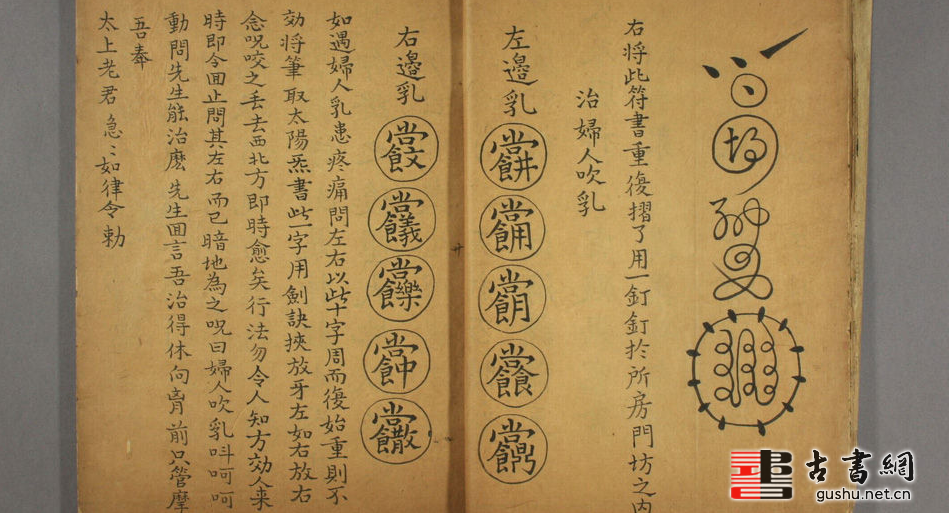 右将此符書重復摺了用一釘釘於所房門坊之内
治婦人吹乳
左邊乳
右邊乳
如遇婦人乳患疼痛問左右以些十字周而復始重則不
効将筆取太陽炁書此一字用劍訣挾放牙左如右放右
念呪咬之丢去西北方即時愈矣行法勿令人知方効人来
時即令囬止問其左右而已暗地為之呪曰婦人吹乳呌呵呵
動問先生能治麽先生囬言吾治得休向前只管摩
吾奉
太上老君急〻如律令勅
廿
古書網
gushu.net.cn